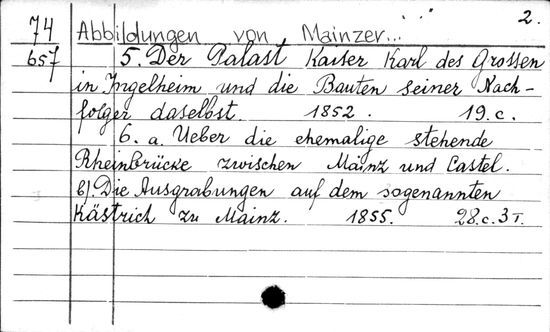 2.
74 Abbildungen von Mainzer...
657 5. Der Palast Kaiser Karl des Grossen
in Ingelheim und die Bauten seiner Nach-
folger daselbst. 1852. 19.c.
6. a. Ueber die ehemalige stehende
Rheinbrücke zwischen Mainz und Castel.
b). Die Ausgrabungen auf dem sogenannten
Kästrich zu Mainz. 1855. 28.c.3 T.